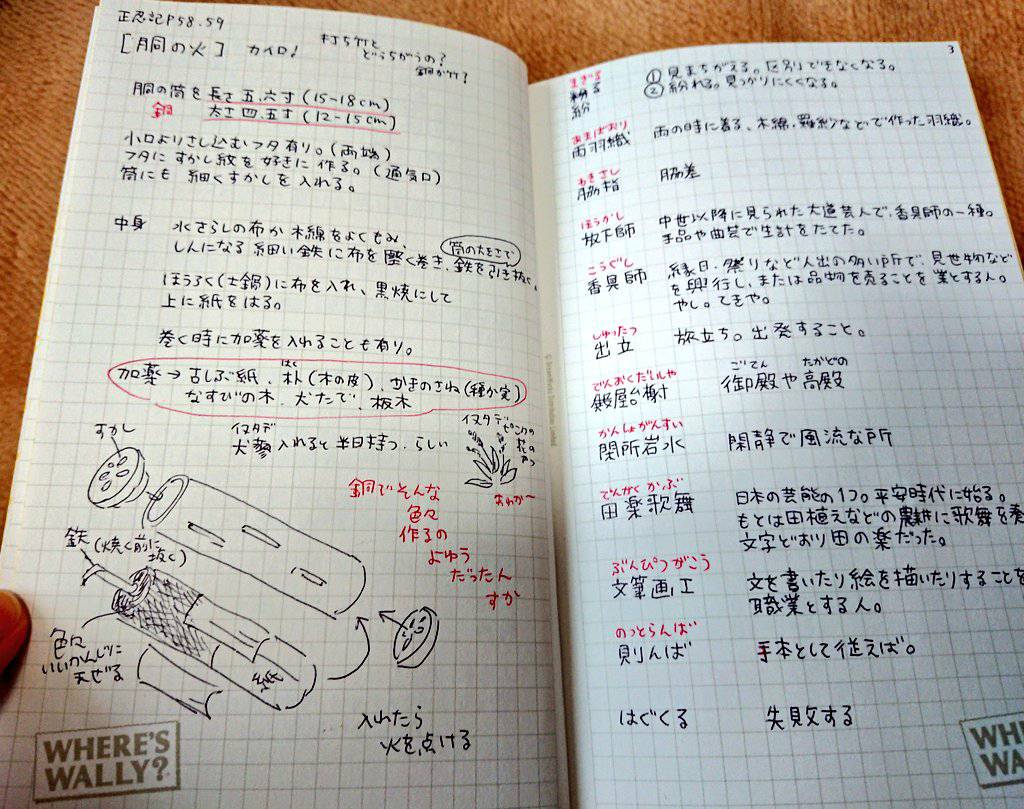 正忍記P58.59
[胴の火] カイロ!
打ち竹と
どうちがうの?
銅か竹?
胴の筒を長さ五、六寸(15-18cm)
銅 太さ四、五寸(12-15cm)
小口よりさし込むフタ有り。(両端)
フタにすかし紋を好きに作る。(通気口)
筒にも細くすかしを入れる。
中身 水さらしの布か木綿をよくもみ、
しんになる細い鉄に布を堅く巻き、鉄を引き抜く。
筒の大きさで
ほうろく(土鍋)に布を入れ、黒焼にして
上に紙をはる。
巻く時に加薬を入れることも有り。
加薬→古しぶ紙、朴(木の皮)、かきのさね(種か実)
はく
なすびの木、犬たで、板木
イヌタデ
犬蓼 入れると半日持つ、らしい
イヌタデ
ピンクの
花のやつ
すかし
銅でそんな
色々
作るの
よゆう
だったん
すか
鉄(焼く前に
抜く)
色々
いいかんじに
紙
入れたら
火を点ける
WHERE'S
WALLY?
3
まぎる
紛る
紛
①見まちがえる。区別できなくなる。
②紛れる。見つかりにくくなる。
あまばおり
雨羽織 雨の時に着る、木綿・羅紗などで作った羽織。
わきさし
脇指 脇差
ほうかし
放下師 中世以降に見られた大道芸人で、香具師の一種。
手品や曲芸で生計をたてた。
こうぐし
香具師 縁日・祭りなど人出の多い所で、見世物など
を興行し、または品物を売ることを業とする人。
やし。てきや。
しゅったつ
出立 旅立ち。出発すること。
でんおくだいしや
殿屋台榭 御殿や高殿
ごてん たかどの
かんしょがんすい
関所岩水 閑静で風流な所
でんがくかぶ
田楽歌舞 日本の芸能の1つ。平安時代に始る。
もとは田植えなどの農耕に歌舞を奏
文字どおり田の楽だった。
ぶんぴつがこう
文筆画工 文を書いたり絵を描いたりすることを
職業とする人。
のっとらんば
則んば 手本として従えば。
はぐくる 失敗する